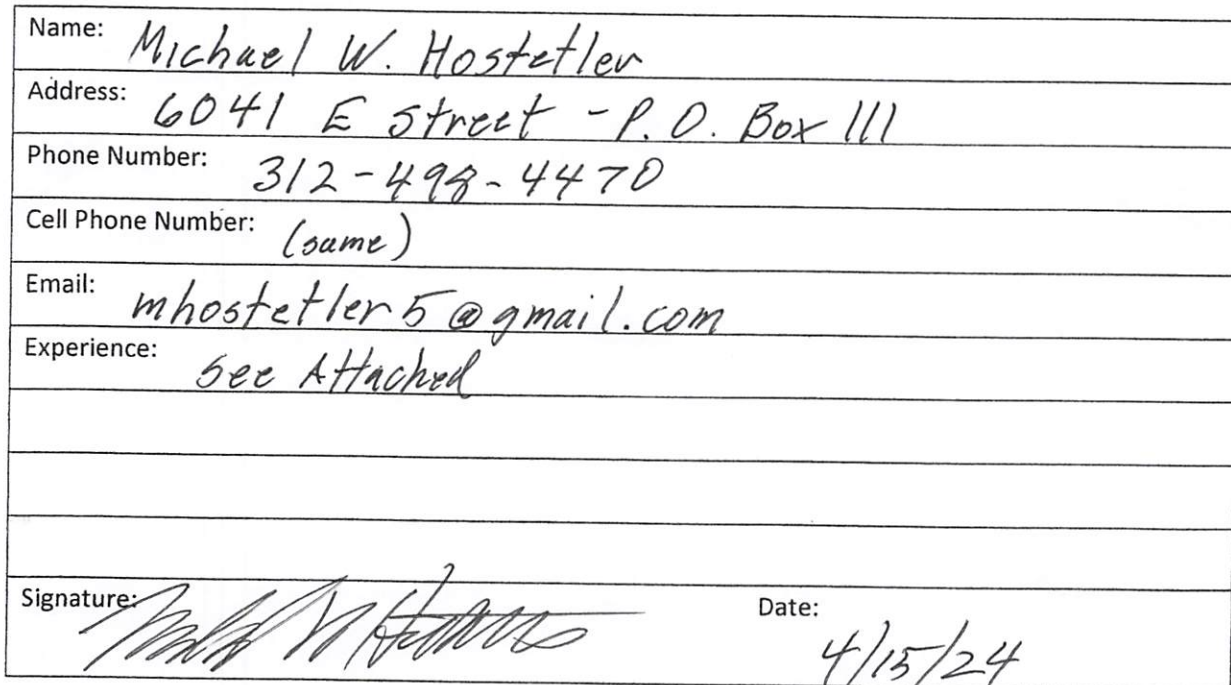 Name: Michael W. Hostetler
Address: 6041 E Street - P.O. Box 111
Phone Number: 312-498-4470
Cell Phone Number: (same)
Email: mhostetler5@gmail.com
Experience: See Attached
Signature:
Date: 4/15/24